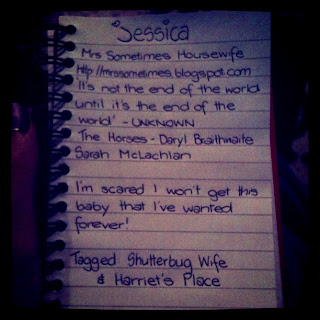 "Jessica
Mrs Sometimes Housewife
http://mrssometimes.blogspot.com
'It's not the end of the world
until it's the end of the
world' - UNKNOWN
The Horses - Daryl Braithwaite
Sarah McLachlan
I'm scared I won't get this
baby that I've wanted
forever!
Tagged Shutterbug Wife
& Harriet's Place